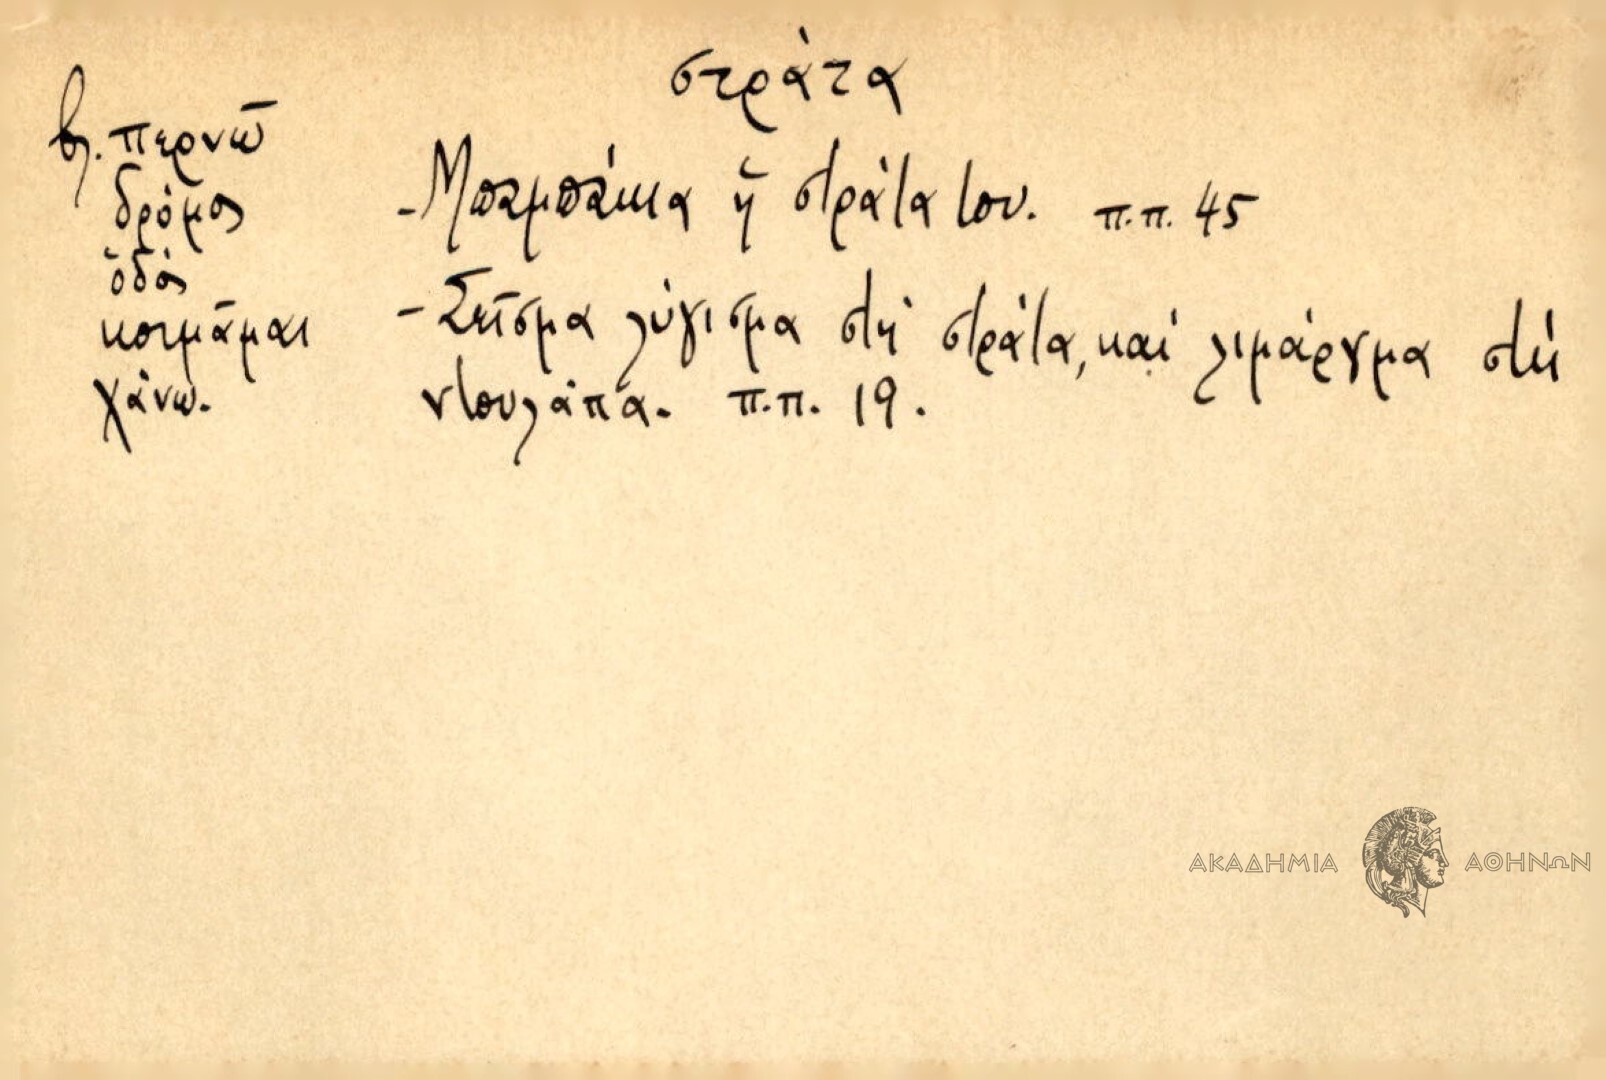 στράτα
βλ. περνῶ
δρόμος
ὁδός
κοιμᾶμαι
χάνω.
- Μπαμπάκια ἡ στράτα του. π.π. 45
- Σεῖσμα λύγισμα στή στράτα, καί λιμάργμα στή
ντουλάπα. π.π. 19.
ΑΚΑΔΗΜΙΑ ΑΘΗΝΩΝ